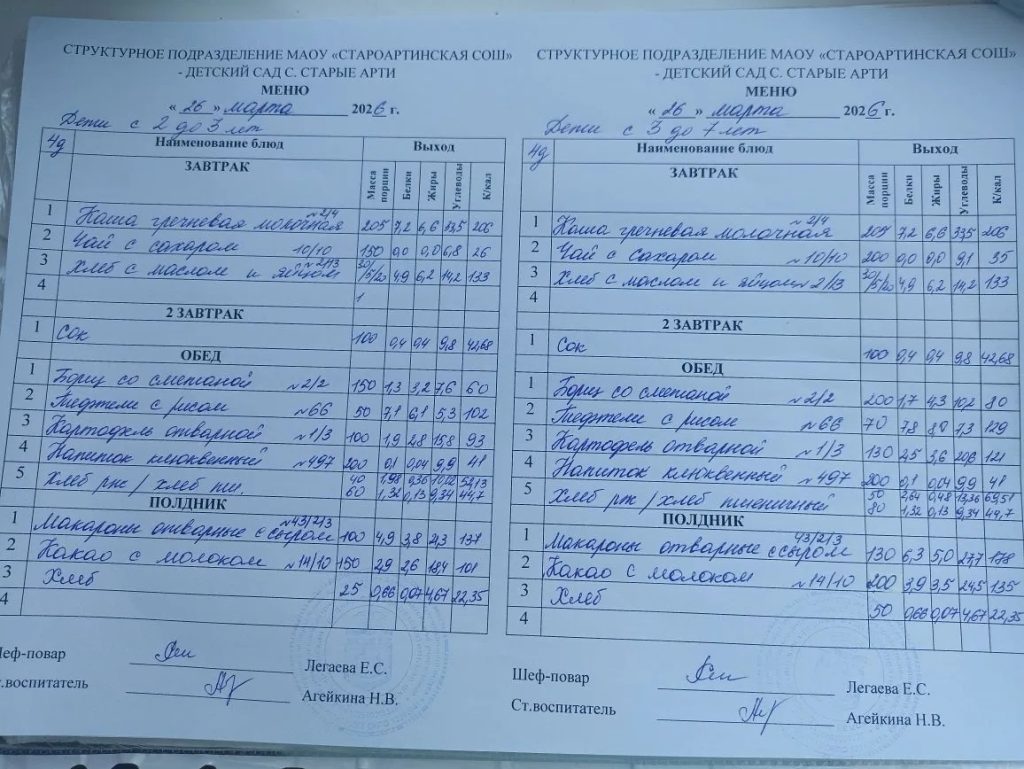 СТРУКТУРНОЕ ПОДРАЗДЕЛЕНИЕ МАОУ «СТАРОАРТИНСКАЯ СОШ»
- ДЕТСКИЙ САД С. СТАРЫЕ АРТИ
МЕНЮ
« 26 » марта 2026 г.
Дети с 2 до 3 лет
4д Наименование блюд Выход
ЗАВТРАК Масса порции Белки Жиры Углеводы К/кал
1 Каша гречневая молочная №2/4 205 7,2 6,6 33,5 206
2 Чай с сахаром 10/10 150 0,0 0,0 6,8 26
3 Хлеб с маслом и яйцом №2/13 30/5/20 4,9 6,2 14,2 133
4
2 ЗАВТРАК
1 Сок 100 0,4 0,4 9,8 42,68
ОБЕД
1 Борщ со сметаной №2/2 150 1,3 3,2 7,6 60
2 Тефтели с рисом №66 50 7,1 6,1 5,3 102
3 Картофель отварной №1/3 100 1,9 2,8 15,8 93
4 Напиток клюквенный №497 200 0,1 0,04 9,9 41
5 Хлеб рж / хлеб пш. 40 1,98 0,36 10,02 52,13
60 1,32 0,13 9,34 44,7
ПОЛДНИК
1 Макароны отварные с сыром №43/2/3 100 4,9 3,8 21,3 137
2 Какао с молоком №14/10 150 2,9 2,6 18,4 101
3 Хлеб 25 0,66 0,07 4,67 22,35
4
Шеф-повар Легаева Е.С.
Ст.воспитатель Агейкина Н.В.
СТРУКТУРНОЕ ПОДРАЗДЕЛЕНИЕ МАОУ «СТАРОАРТИНСКАЯ СОШ»
- ДЕТСКИЙ САД С. СТАРЫЕ АРТИ
МЕНЮ
« 26 » марта 2026 г.
Дети с 3 до 7 лет
4д Наименование блюд Выход
ЗАВТРАК Масса порции Белки Жиры Углеводы К/кал
1 Каша гречневая молочная №2/4 205 7,2 6,6 33,5 206
2 Чай с сахаром №10/10 200 0,0 0,0 9,1 35
3 Хлеб с маслом и яйцом 2/13 30/5/20 4,9 6,2 14,2 133
4
2 ЗАВТРАК
1 Сок 100 0,4 0,4 9,8 42,68
ОБЕД
1 Борщ со сметаной №2/2 200 1,7 4,3 10,2 80
2 Тефтели с рисом №66 70 7,8 7,3 129
3 Картофель отварной №1/3 130 2,5 3,6 20,6 121
4 Напиток клюквенный №497 200 0,1 0,04 9,9 41
5 Хлеб рж / хлеб пшеничный 50 2,64 0,48 13,36 69,51
80 1,32 0,13 9,34 44,7
ПОЛДНИК
1 Макароны отварные с сыром 43/2/3 130 6,3 5,0 27,7 178
2 Какао с молоком №14/10 200 3,9 3,5 24,5 135
3 Хлеб 50 0,66 0,07 4,67 22,35
4
Шеф-повар Легаева Е.С.
Ст.воспитатель Агейкина Н.В.